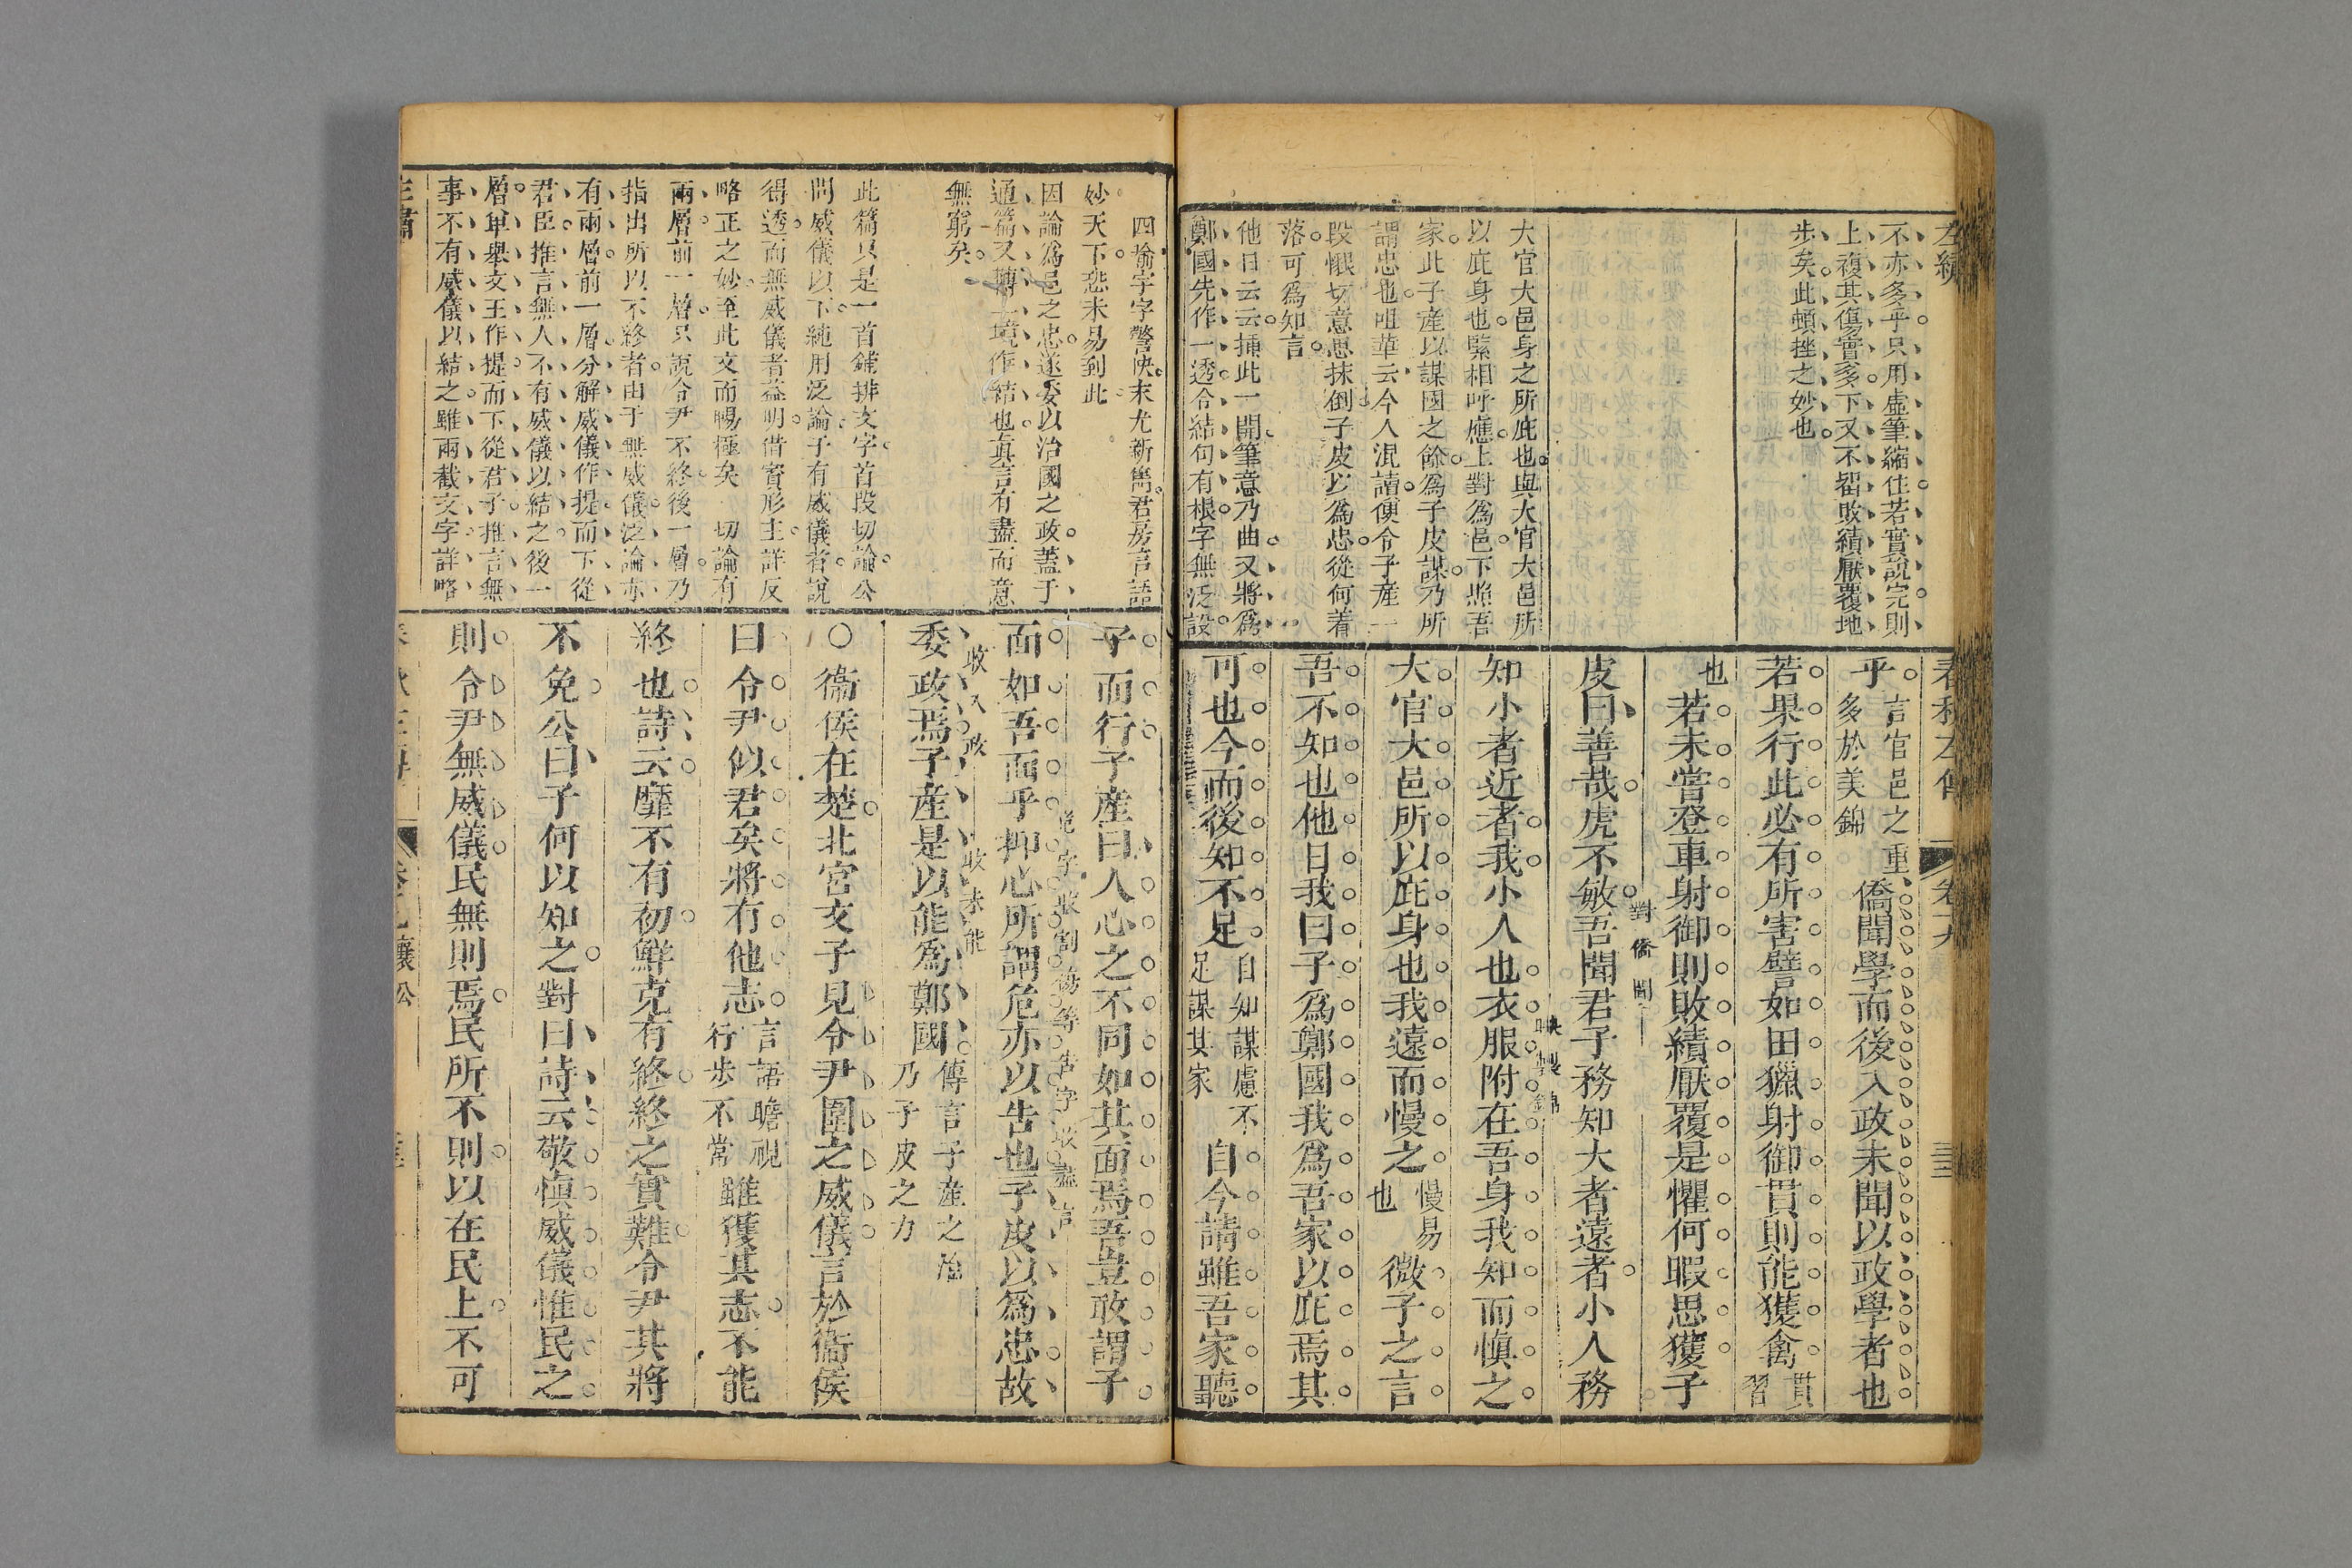 不亦多乎只用虛筆縮住若實說完則
上複其傷實多下又不留敗績厭覆地
步矣此頓挫之妙也
大官大邑身之所庇也與大官大邑所
以庇身也緊相呼應上對爲邑下照吾
家此子產以謀國之餘爲子皮謀乃所
謂忠也咀華云今人混讀便令子產一
段懇切意思抹倒子皮以爲忠從何着
落可爲知言
他日云云捅此一開筆意乃曲又將爲
鄭國先作一透令結句有根字無泛設
乎言官邑之重多於美錦僑聞學而後入政未聞以政學者也
若果行此必有所害譬如田獵射御貫則能獲禽貫習
也若未嘗登車射御則敗績厭覆是懼何暇思獲子
對僑聞
皮曰善哉虎不敏吾聞君子務知大者遠者小人務
映製錦
知小者近者我小人也衣服附在吾身我知而慎之
大官大邑所以庇身也我遠而慢之慢易也微子之言
吾不知也他日我曰子爲鄭國我爲吾家以庇焉其
可也今而後知不足自知謀慮不足謀其家自今請雖吾家聽
四喻字字警快末尤新雋君房言語
妙天下恐未易到此
因論爲邑之忠遂委以治國之政蓋于
通篇又轉一境作結也眞言有盡而意
無窮矣
此篇只是一首鋪排文字首段切論公
問威儀以下純用泛論子有威儀者說
得透而無威儀者益明借賓形主詳反
略正之妙至此文而暢極矣一切論有
兩層前一層只說令尹不終後一層乃
指出所以不終者由于無威儀泛論亦
有兩層前一層分解威儀作提而下從
君臣推言無人不有威儀以結之後一
層單舉文王作提而下從君子推言無
事不有威儀以結之雖兩截文字詳略
子而行子產曰人心之不同如其面焉吾豈敢謂子
面如吾面乎抑心所謂危亦以告也子皮以爲忠故
收入政 收未能
委政焉子產是以能爲鄭國傳言子產之治乃子皮之力
○衞侯在楚北宮文子見令尹圍之威儀言於衞侯
曰令尹似君矣將有他志言語瞻視行步不常雖獲其志不能
終也詩云靡不有初鮮克有終終之實難令尹其將
不免公曰子何以知之對曰詩云敬慎威儀惟民之
則令尹無威儀民無則焉民所不則以在民上不可